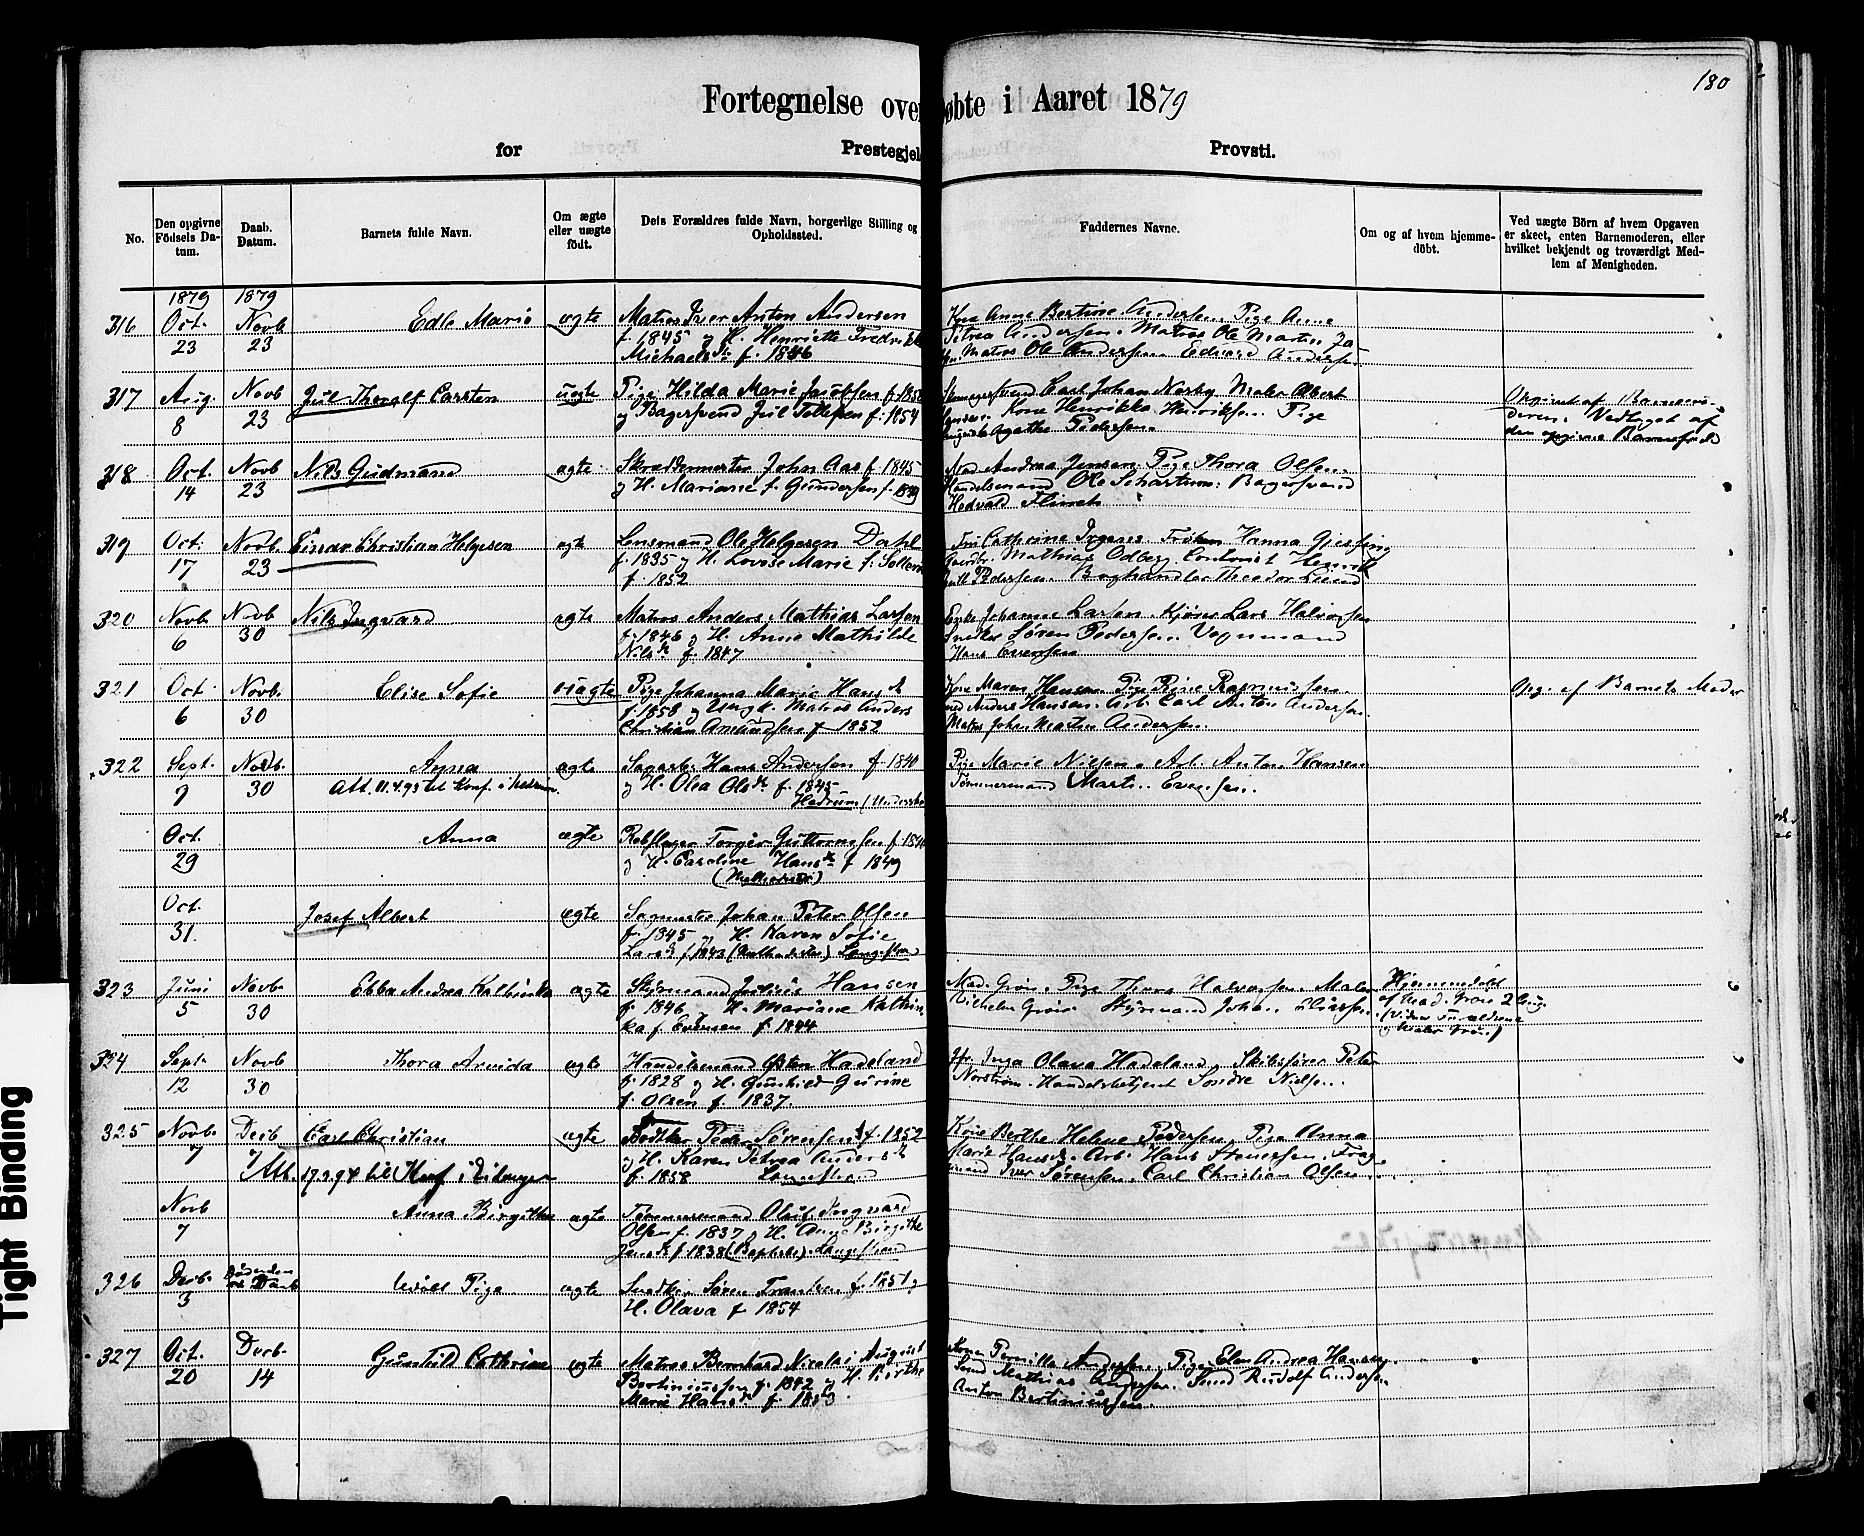 180
Fortegnelse over Døbte i Aaret 1879
for Prestegjeld Provsti.
No.
Den opgivne Födsels Datum.
Daab. Datum.
Barnets fulde Navn.
Om ægte eller uægte födt.
Dets Forældres fulde Navn, borgerlige Stilling og Opholdssted.
Faddernes Navne.
Om og af hvem hjemmedöbt.
Ved uægte Börn af hvem Opgaven er skeet, enten Barnemoderen, eller hvilket bekjendt og troværdigt Medlem af Menigheden.
1879 1879
316 Oct. 23 Novb 23 Edle Marie ægte Matros Iver Anton Andersen
f. 1845 og H. Henriette Fredrikke
Michaelsdr. f. 1846
Kone Anne Bertine Andersen Pige Anne
Petrea Andersen. Matros Ole Martin
Matros Ole Andersen Edvard Andersen
317 Aug. 8 Novb 23 Jul Thoralf Carsten uægte Pige Hilda Marie Jacobsen
og Bagersvend Jul Tollefsen f. 1854
Carl Johan Norby Maler Albert
Kone Henrikke Henriksen. Pige
Agathe Pedersen.
Opgivet af Barnemoderen. Vedtaget af
den opgivne Barnefader
318 Oct. 14 Novb 23 Nils Gudmand ægte Skreddermester John Aas f. 1845
og H. Mariane f. Gundersen f. 1849
Mad. Andrea Jensen. Pige Thora Olsen.
Handelsmand Ole Schartum. Bagersvend
Hedvald
319 Oct. 17 Novb. 23 Einar Christian Helgesen ægte Lensmand Ole Helgesen Dahl
f. 1835 og H. Lovise Marie f.
f. 1852
Fru Cathrine Frøken Hanna
Mathias Odberg Contorist Henrik
Pedersen. Boghandler Theodor Lund
320 Novb. 6 Novb 30 Nils Ingvard ægte Matros Anders Mathias Larsen
f. 1846 og H. Anne Mathilde
Nilsdr. f. 1847
Enke Johanne Larsen. Kjører Lars Halvorsen
Snedker Søren Pedersen. Vognmand
Hans Evensen
321 Oct. 6 Novb. 30 Elise Sofie uægte Pige Johanna Marie Hansdr.
f. 1858 og Ungk. Matros Anders
Christian Amundsen f. 1852
Kone Maren Hansen. Pige Rine Rasmussen.
Anders Hansen. Arb. Carl Anton Andersen.
Matros Johan Martin Andersen.
Opg. af Barnets Moder
322 Sept. 7 Novb. 30 Anna ægte Sagarb. Hans Andersen f. 1840
og H. Olea Olsdr. f. 1845
Att. 11.4.95 til Konf. i Hedrum.
Hedrum
Pige Marie Nielsen. Arb. Anton Hansen
Tømmermand Martin Evensen.
Oct. 29 Anna ægte Rebslager Torger Guttormsen f. 1840
og H. Caroline Hansdr. f. 1849
(Methodister)
Oct. 31. Josef Albert ægte Sagmester Johan Peter Olsen
f. 1845 og H. Karen Sofie
Larsdr. f. 1843 (Methodister) Langestrand
323 Juni 5 Novb 30 Ebba Andrea Kathinka ægte Styrmand Julius Hansen
f. 1846 og H. Mariane Kathinka
f. Evensen f. 1844
Mad. Grøn. Pige Thora Halvorsen. Maler
Vilhelm Grøn. Styrmand Johan
Hjemmedöbt
af Mad. Grøn 2 Aug.
324 Sept. 12 Novb 30 Thora Arvida ægte Handelsmand Østen Hadeland
f. 1828 og H. Gunhild Gurine
f. Olsen f. 1837.
Jfr. Inga Olava Hadeland. Skibsfører Peter
Nordstrøm. Handelsbetjent Søndre Nielsen.
325 Novb. 7 Decb 7 Carl Christian ægte Bødker Peder Sørensen f. 1852
og H. Karen Petrea Andersdr.
f. 1858 Langestrand
Att. 17.3.94 til Konf. i Eidanger
Kone Berthe Helene Pedersen. Pige Anna
Marie Hansdr. Arb. Hans
Iver Sørensen. Carl Christian Olsen.
Novb 7 Anna Birgitte ægte Tømmermand Oluf Ingvard
Olsen f. 1837 og H. Anne Birgithe
Jensdr. f. 1838 (Baptister). Langestrand
326 Decb. 3 Död uden Daab Udöbt Pige ægte Snedker Søren Frantsen f. 1851 og
H. Olava f. 1854
327 Oct. 20 Decb. 14 Gunhild Cathrine ægte Matros Bernhard Nicolai August
Bertiniussen f. 1842 og H. Berthe
Marie Hansdr. f. 1853
Kone Pernille Andersen. Pige Elen Andrea Hansen.
Mathias Andersen. Rudolf Andersen
Anton Bertiniussen.
Tight Binding